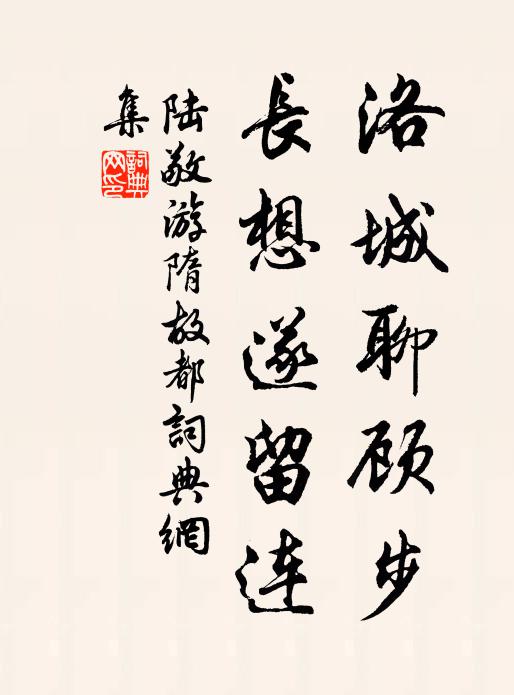 洛城聊顾步
長想遂留连
陆敬游隋故都詞典網
集
詞典网印